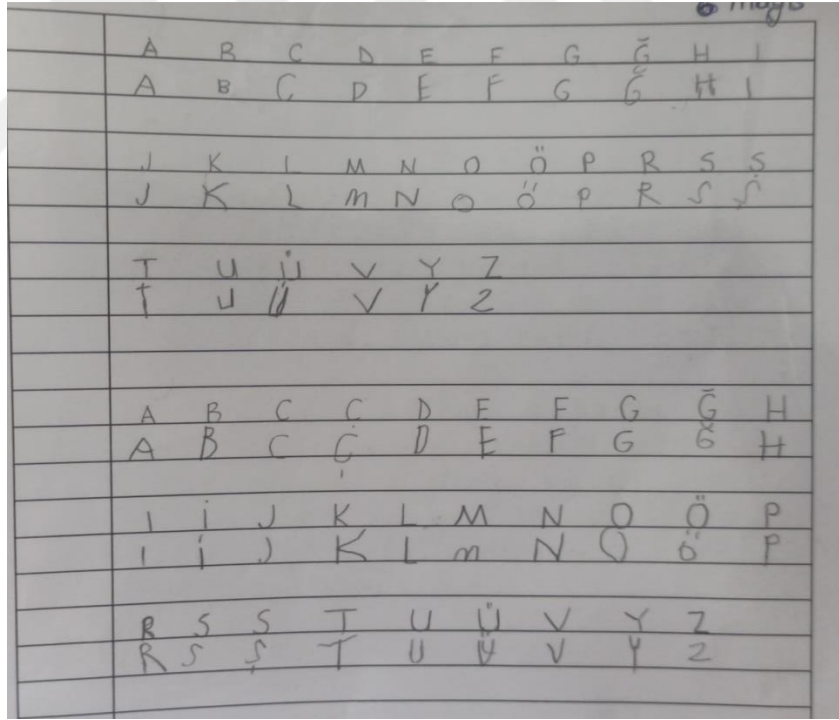 A B C D E F G Ğ H I
A B Ç D E F G Ğ H I
J K L M N O Ö P R S Ş
J K L m N O Ö P R S Ş
T U Ü V Y Z
T U Ü V Y Z
A B C Ç D E F G Ğ H
A B C Ç D E F G Ğ H
I İ J K L M N O Ö P
I İ J K L m N O Ö P
R S Ş T U Ü V Y Z
R S Ş T U Ü V Y Z